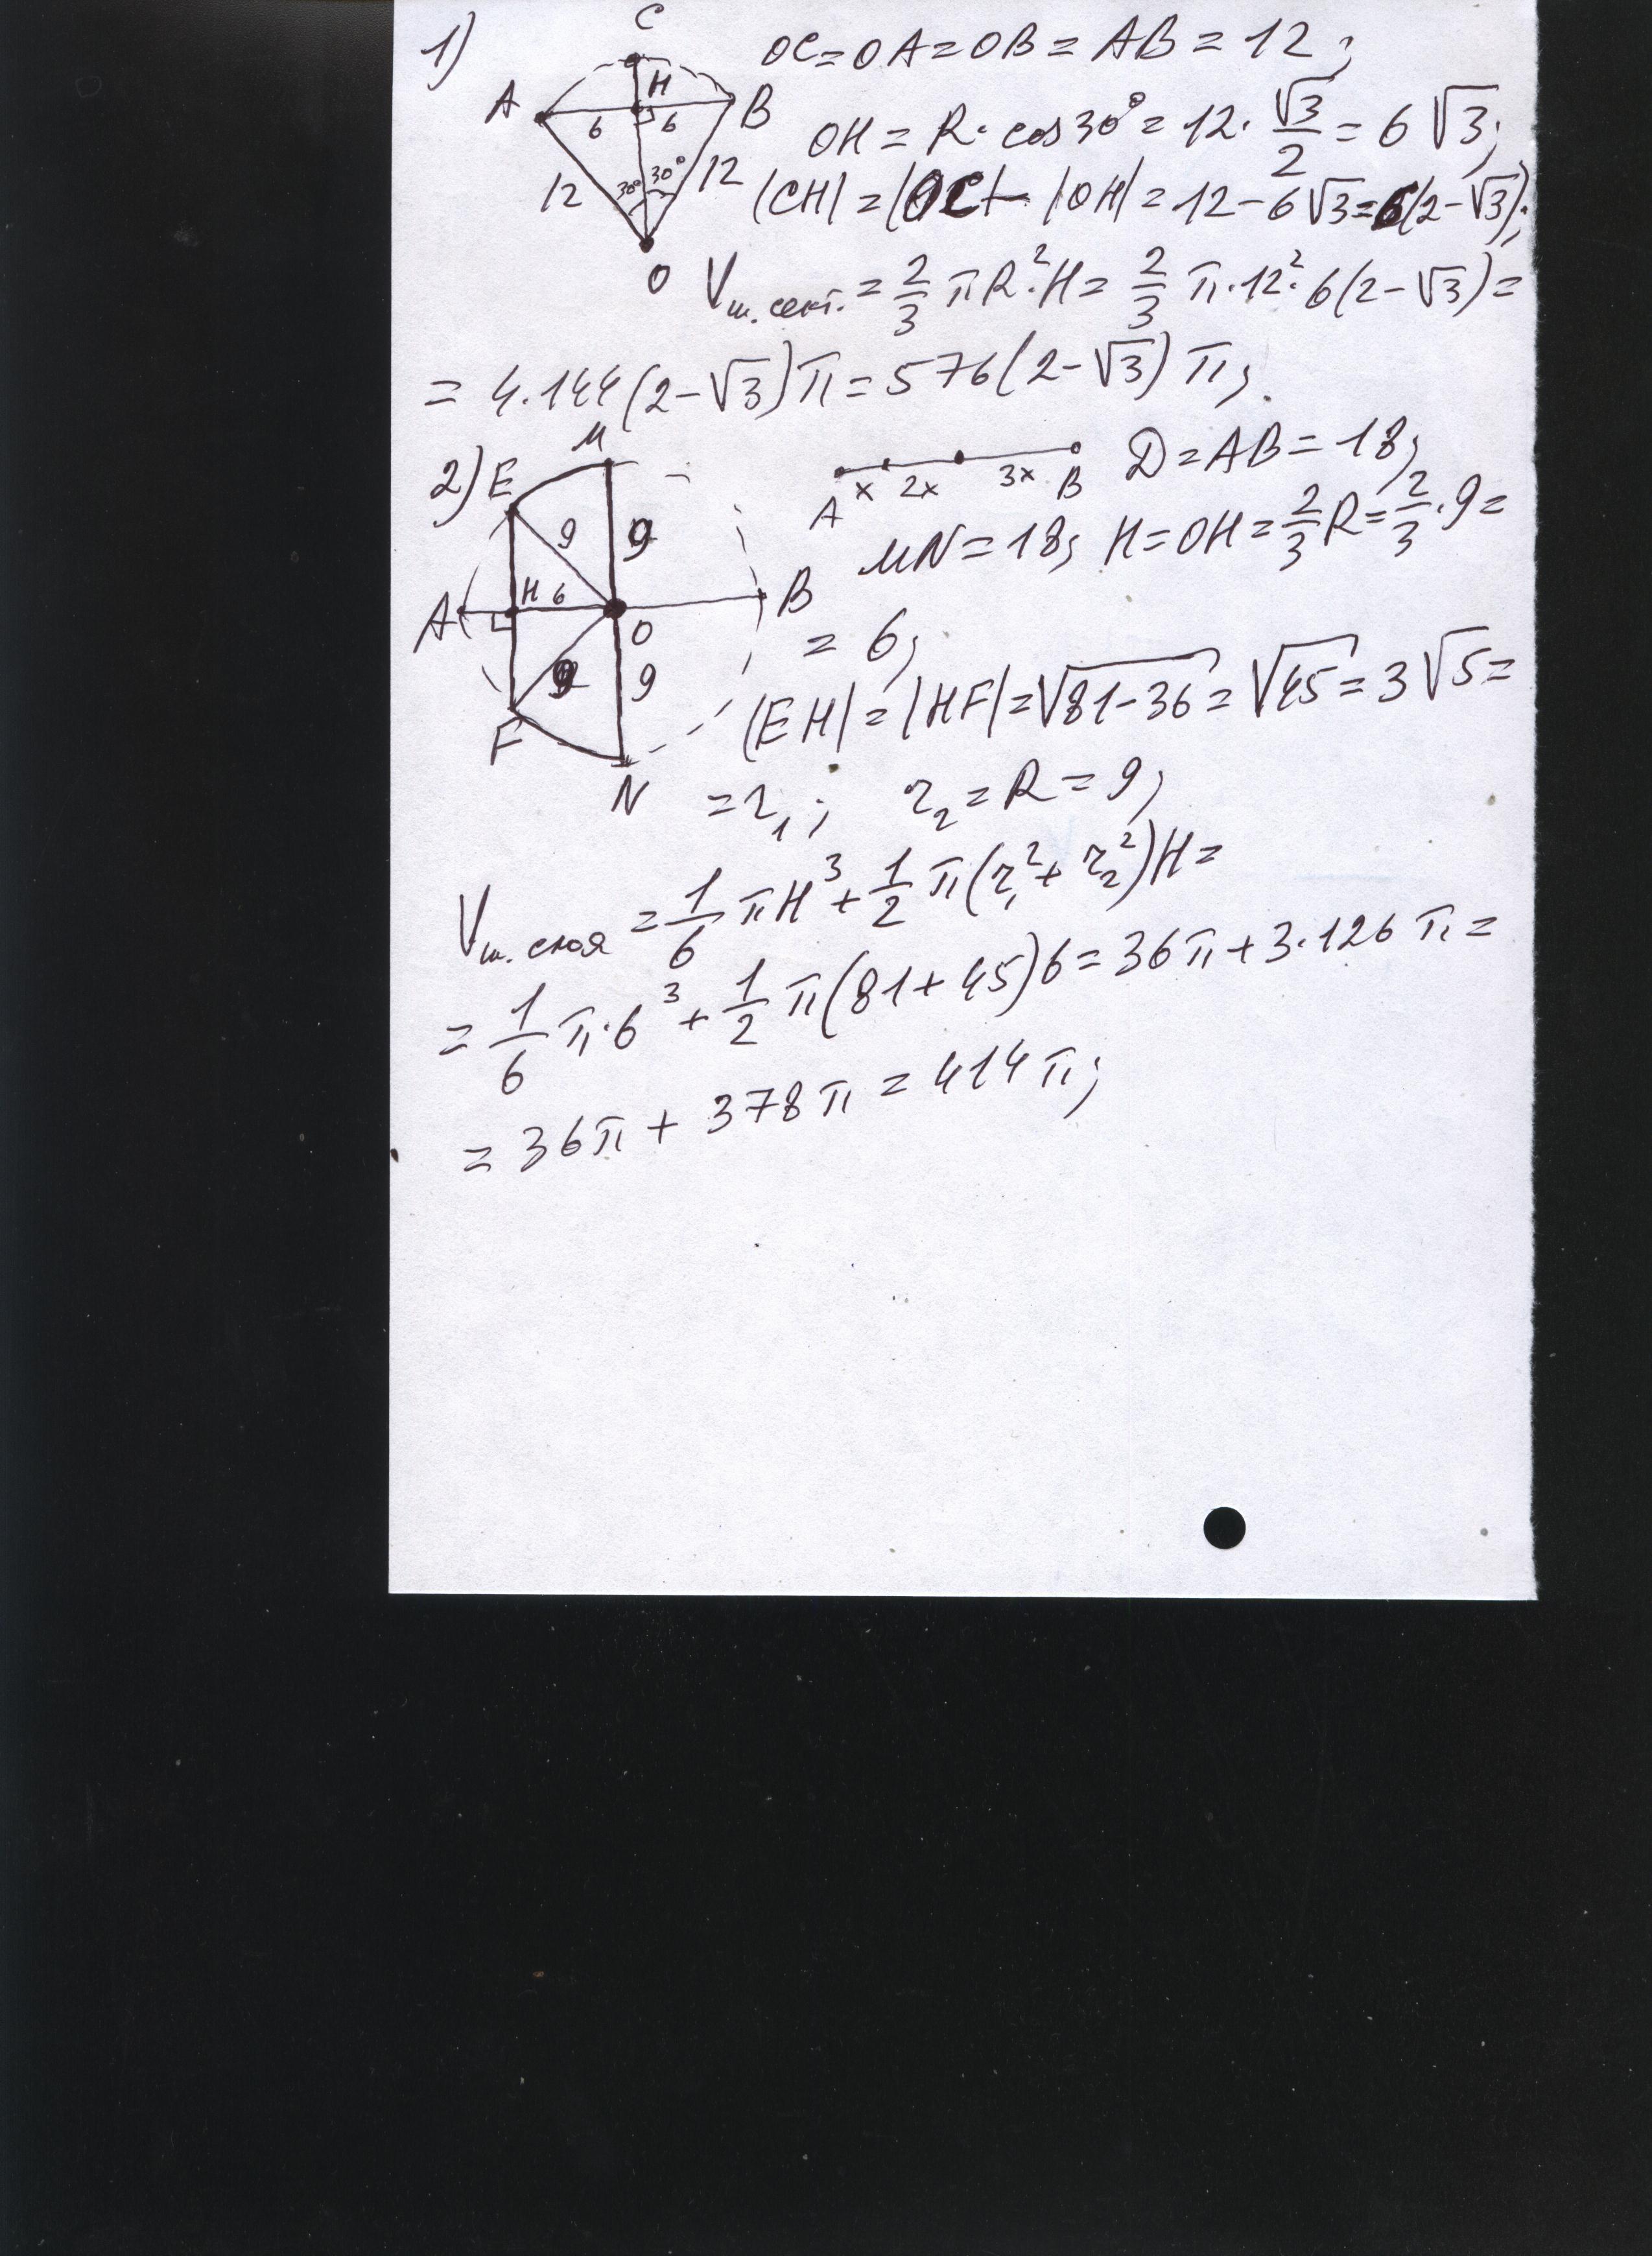 1)
C
A
H
B
6
6
12
30°
30°
12
O
OC=OA=OB=AB=12;
OH=R·cos30°=12·√3/2=6√3;
|CH|=|OC|-|OH|=12-6√3=6(2-√3);
Vш.сект.=2/3πR²·H=2/3π·12²·6(2-√3)=
=4·144(2-√3)π=576(2-√3)π;
2)
E
M
9
9
A
H
6
O
B
9
9
F
N
A x 2x 3x B D=AB=18;
MN=18; H=OH=2/3R=2/3·9=
=6;
|EH|=|HF|=√81-36=√45=3√5=
=r₁; r₂=R=9;
Vш.слоя=1/6πH³+1/2π(r₁²+r₂²)H=
=1/6π·6³+1/2π(81+45)6=36π+3·126π=
=36π+378π=414π;